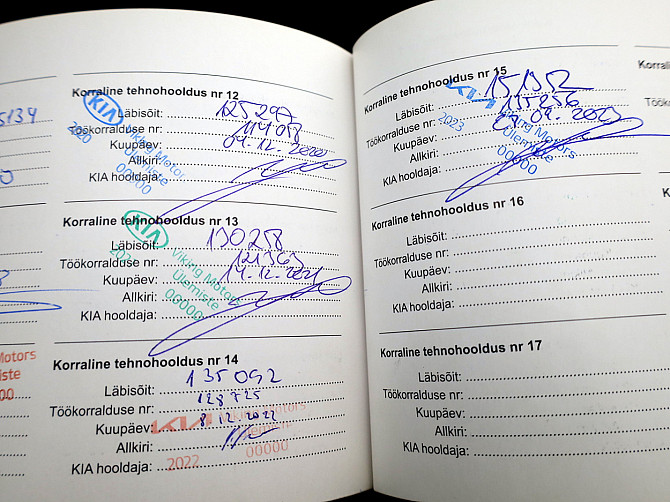 5134
Korraline tehnohooldus nr 12
Läbisõit: 125 297
Töökorralduse nr: 114058
Kuupäev: 04.12.2020
Allkiri:
KIA hooldaja:
KIA
2020
Viking Motors
Ülemiste
00000
Korraline tehnohooldus nr 13
Läbisõit: 130258
Töökorralduse nr: 121363
Kuupäev: 14.12.2021
Allkiri:
KIA hooldaja:
KIA
Viking Motors
Ülemiste
00000
Motors
Korraline tehnohooldus nr 14
Läbisõit: 135092
Töökorralduse nr: 128725
Kuupäev: 8 12.2022
Allkiri:
KIA hooldaja:
KIA
2022
Motors
00000
Korraline tehnohooldus nr 15
Läbisõit: 151352
Töökorralduse nr:
Kuupäev:
Allkiri:
KIA hooldaja:
KIA
2023
Viking Motors
Ülemiste
00000
Korraline tehnohooldus nr 16
Läbisõit:
Töökorralduse nr:
Kuupäev:
Allkiri:
KIA hooldaja:
Korraline tehnohooldus nr 17
Läbisõit:
Töökorralduse nr:
Kuupäev:
Allkiri:
KIA hooldaja: